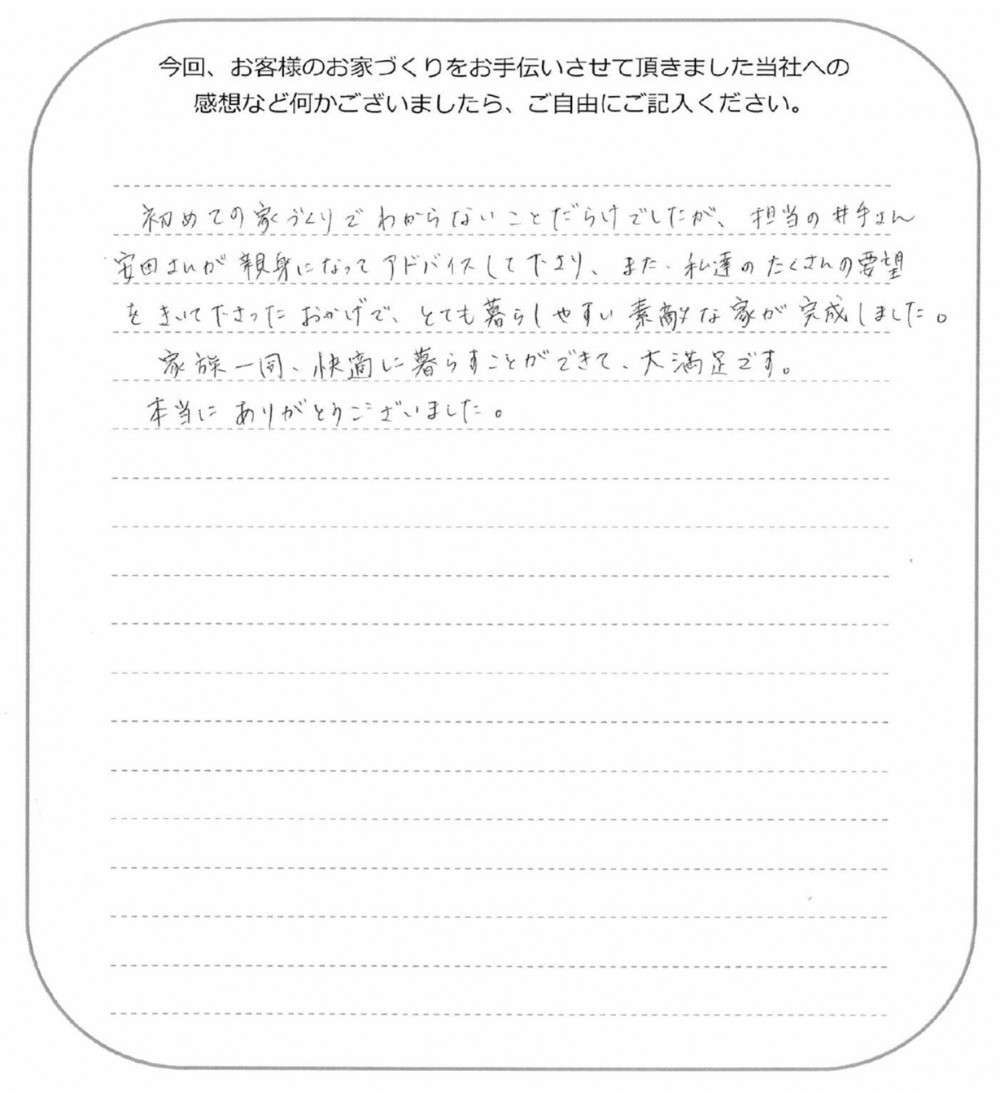 今回、お客様のお家づくりをお手伝いさせて頂きました当社への
感想など何かございましたら、ご自由にご記入ください。
初めての家づくりでわからないことだらけでしたが、担当の井手さん
安田さんが親身になってアドバイスして下さり、また、私達のたくさんの要望
をきいて下さったおかげで、とても暮らしやすい素敵な家が完成しました。
家族一同、快適に暮らすことができて、大満足です。
本当にありがとうございました。